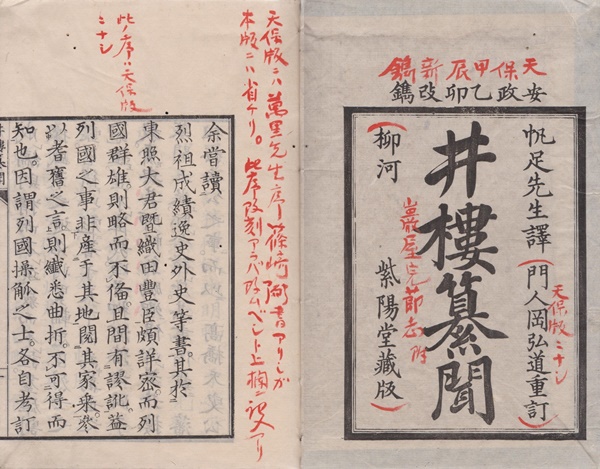 天保甲辰新鐫
安政乙卯改鐫
帆足先生譯(門人岡弘道重訂)
天保版ニナシ
井樓纂聞
巖屋完節志附
(柳河 紫陽堂藏版)
天保版ニハ萬里先生序篠崎弼書アリシガ
本版ニハ省ケリ。此序改刻アラバ
上欄ニ記入アリ
此ノ序ハ天保版
ニナシ
余嘗讀
烈祖成績逸史外史等書。其於
東照大君暨織田豐臣頗詳密。而列
國群雄。則略而不備。且間有謬訛。蓋
列國之事。非産于其地。閲其家乘。參
以耆舊之言。則纖悉曲折。不可得而
知也。因謂列國操觚之士。各自考訂